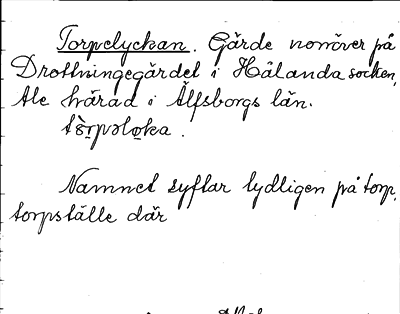 Torpelyckan. Gärde norröver på
Drottningegärdet i Hålanda socken,
Ale härad i Älfsborgs län.
Namnet syftar tydligen på torp,
torpställe där